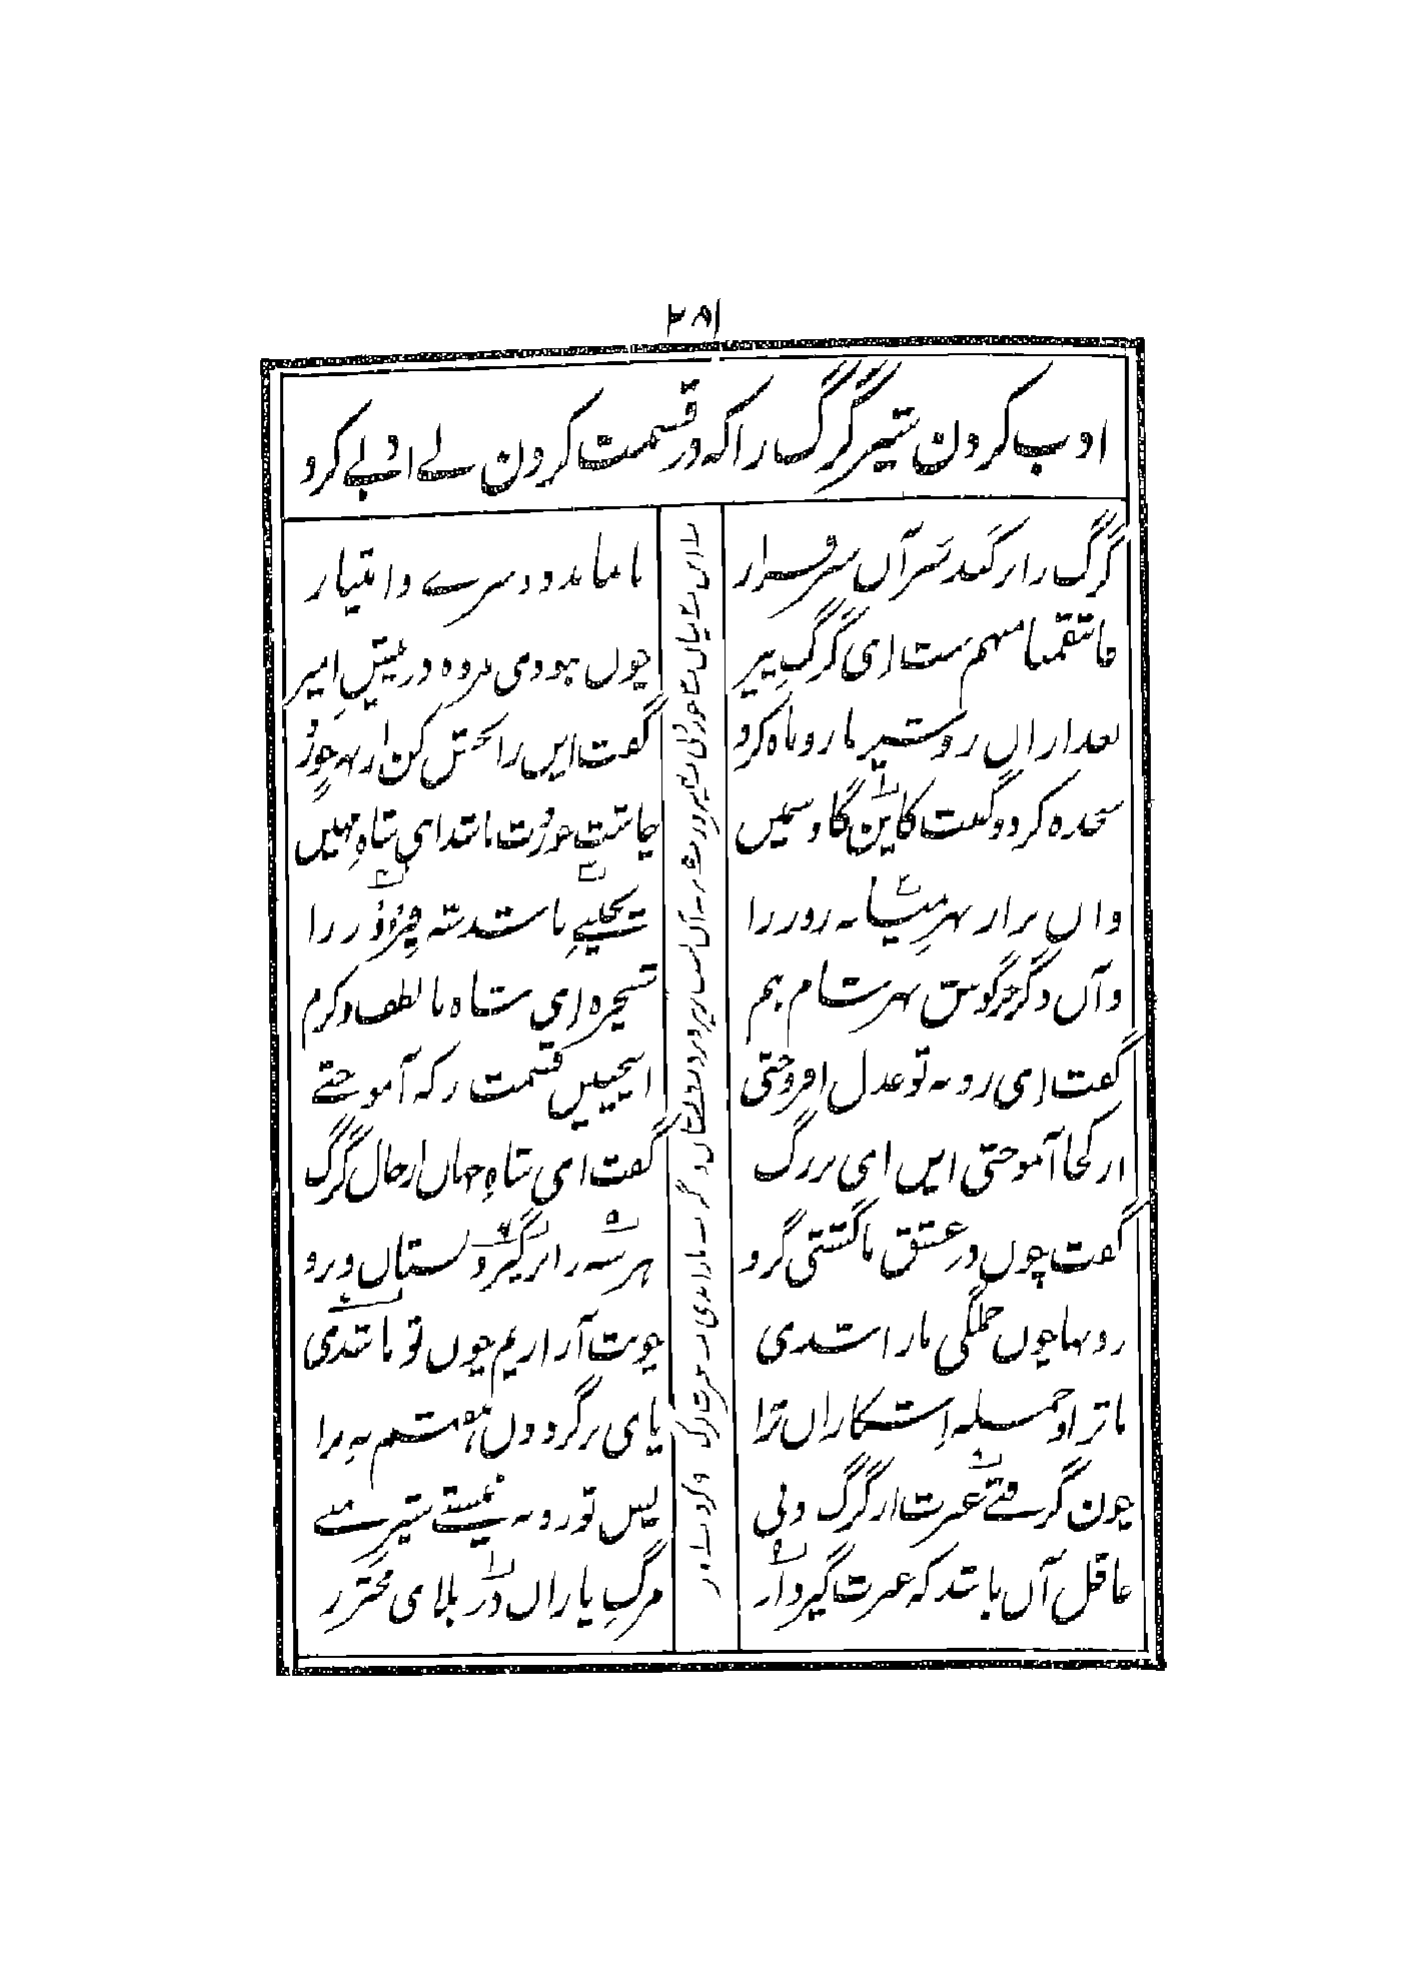 ۲۸۱
ادب کردن شیر گرگ را که در قسمت کردن بے ادبے کرد
گرگ را برکند سر آں سرفراز
تا نماند دو سرے و امتیاز
فانتقمنا منهم ست ای گرگِ پیر
چوں نبودی مرده در پیشِ امیر
بعد ازاں رو شیر با روباه کرد
گفت ایں را بخش کن از بهر خورد
سجده کرد و گفت کایں گاو سمیں
چاشت خوردت باشد ای شاهِ مهیں
واں بز از بهرِ میانه روز را
یخنیے باشد شه پیروز را
وآں دگر خرگوش بهر شام هم
شبچره ای شاه با لطف و کرم
گفت ای روبه تو عدل افروختی
ایں چنیں قسمت ز که آموختے
از کجا آموختی ایں ای بزرگ
گفت ای شاهِ جهاں از حال گرگ
گفت چوں در عشق ما گشتی گرو
هر سه را برگیر و بستاں و برو
روبها چوں جملگی ما را شدی
چونت آزاریم چوں تو ما شدی
ما ترا و جمله اِشکاراں ترا
پای بر گردون هفتم نه برا
چون گرفتے عبرت از گرگ دنی
پس تو روبه نیستے شیر منے
عاقل آں باشد که عبرت گیرد از
مرگِ یاراں در بلای محترز